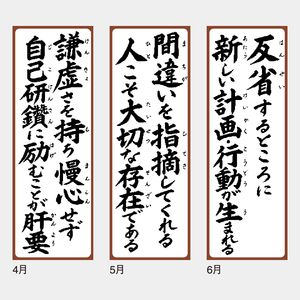 反省するところに
新しい計画・行動が生まれる
6月
間違いを指摘してくれる
人こそ大切な存在である
5月
謙虚さを持ち慢心せず
自己研鑽に励むことが肝要
4月